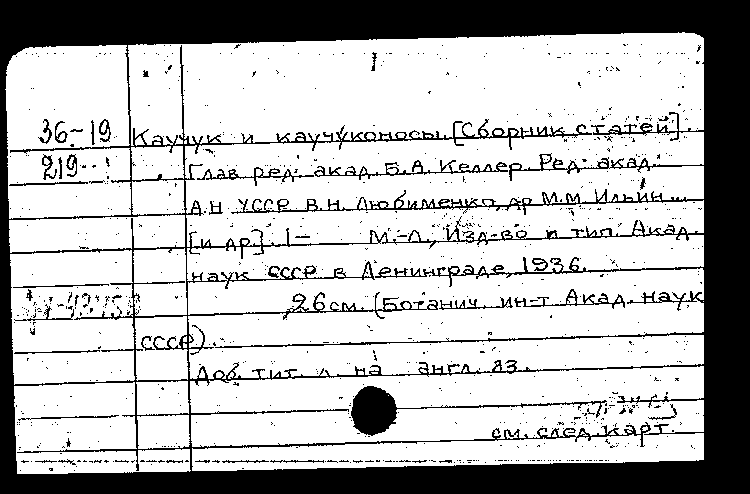 36-19 Каучук и каучуконосы. [Сборник статей].
219 Глав. ред: акад. Б.А. Келлер. Ред: акад.
А.Н УССР В.Н. Любименко, др М.М Ильин...
[и др]. 1- М.-Л., Изд-во и тип. Акад.
наук СССР в Ленинграде, 1936.
26 см. (Ботанич. ин-т Акад. наук
СССР).
Доб. тит. л. на англ. яз.
см. след. карт.